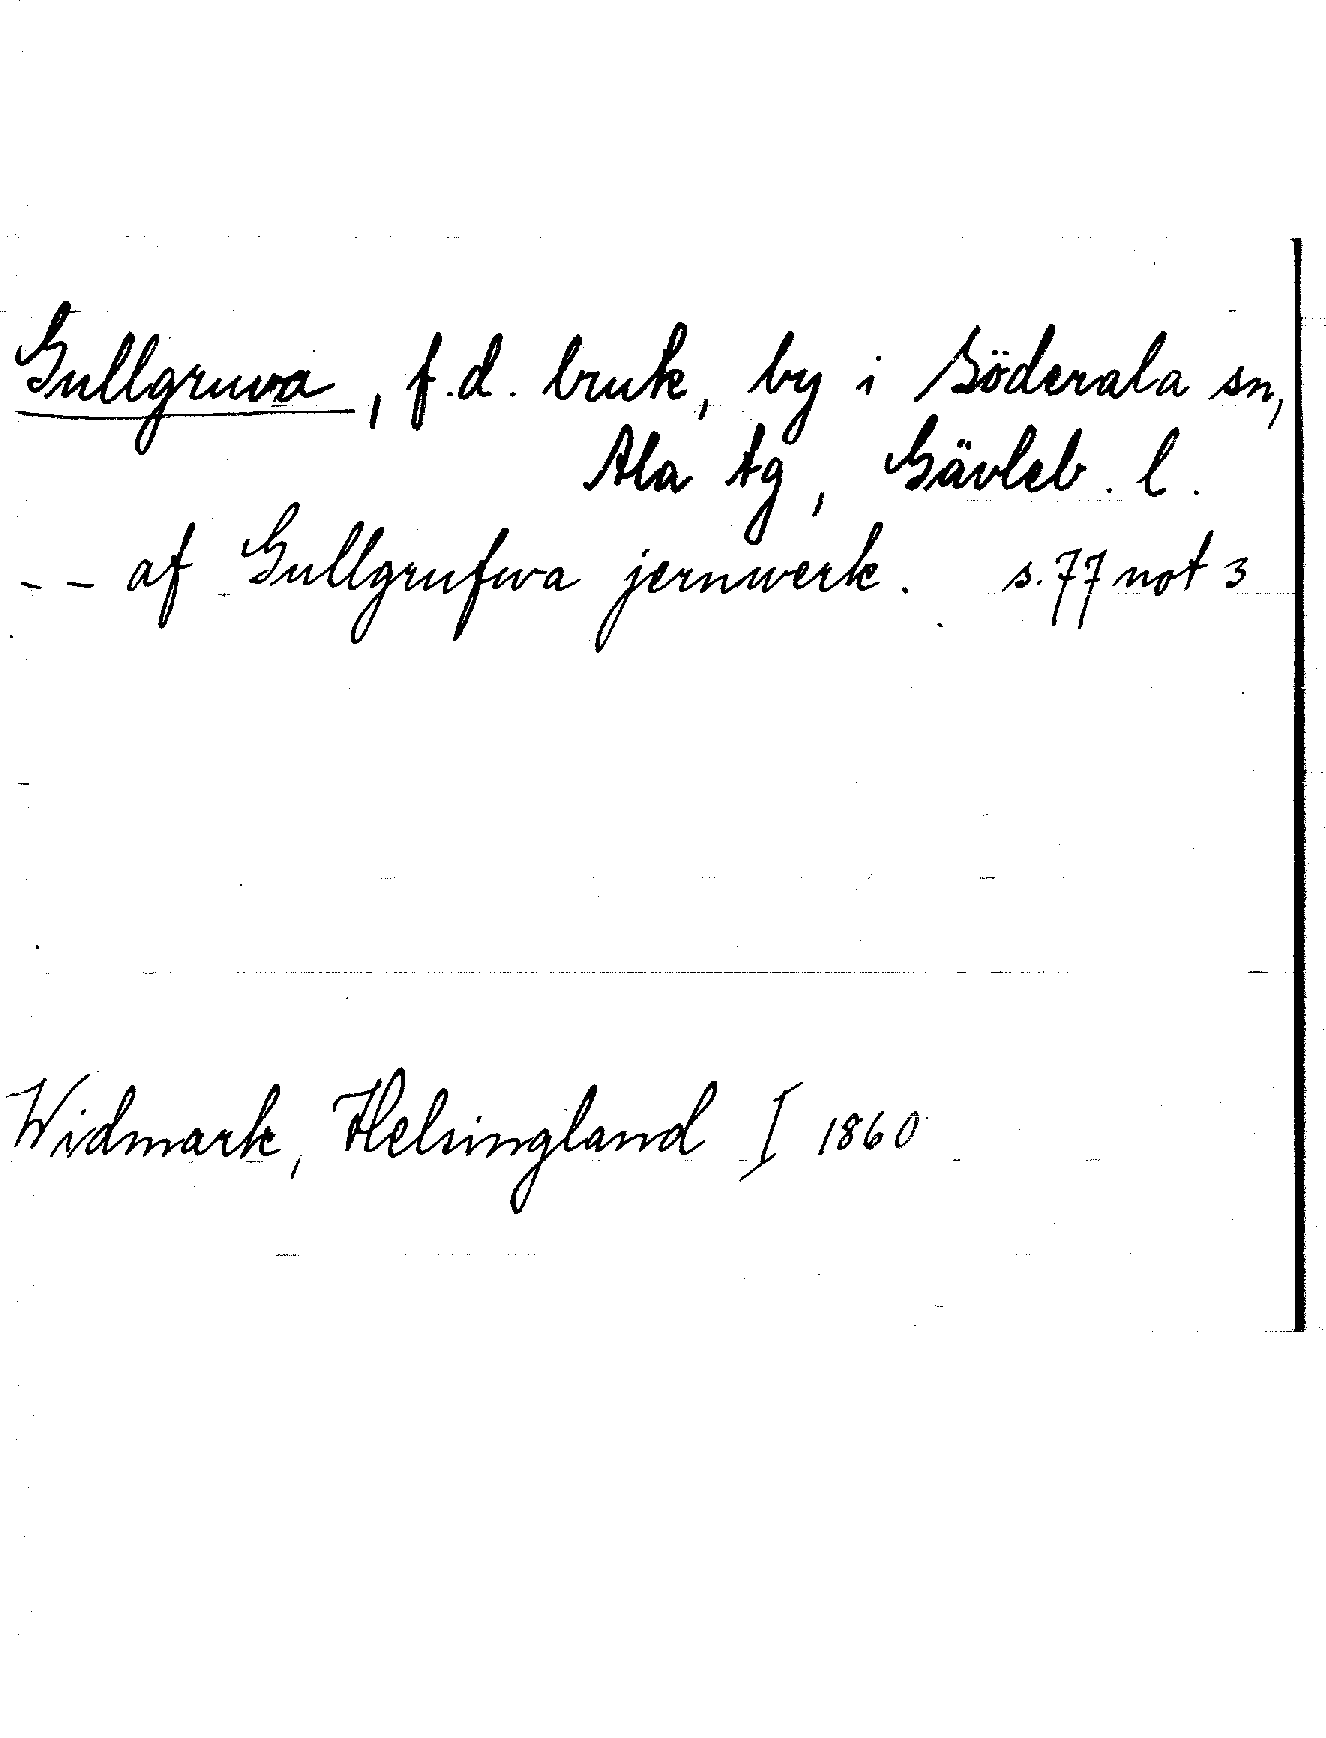 Gullgruva, f.d. bruk, by i Söderala sn,
Ala tg, Gävleb. l.
-- af Gullgrufwa jernwerk. s. 77 not 3
Widmark, Helsingland I 1860